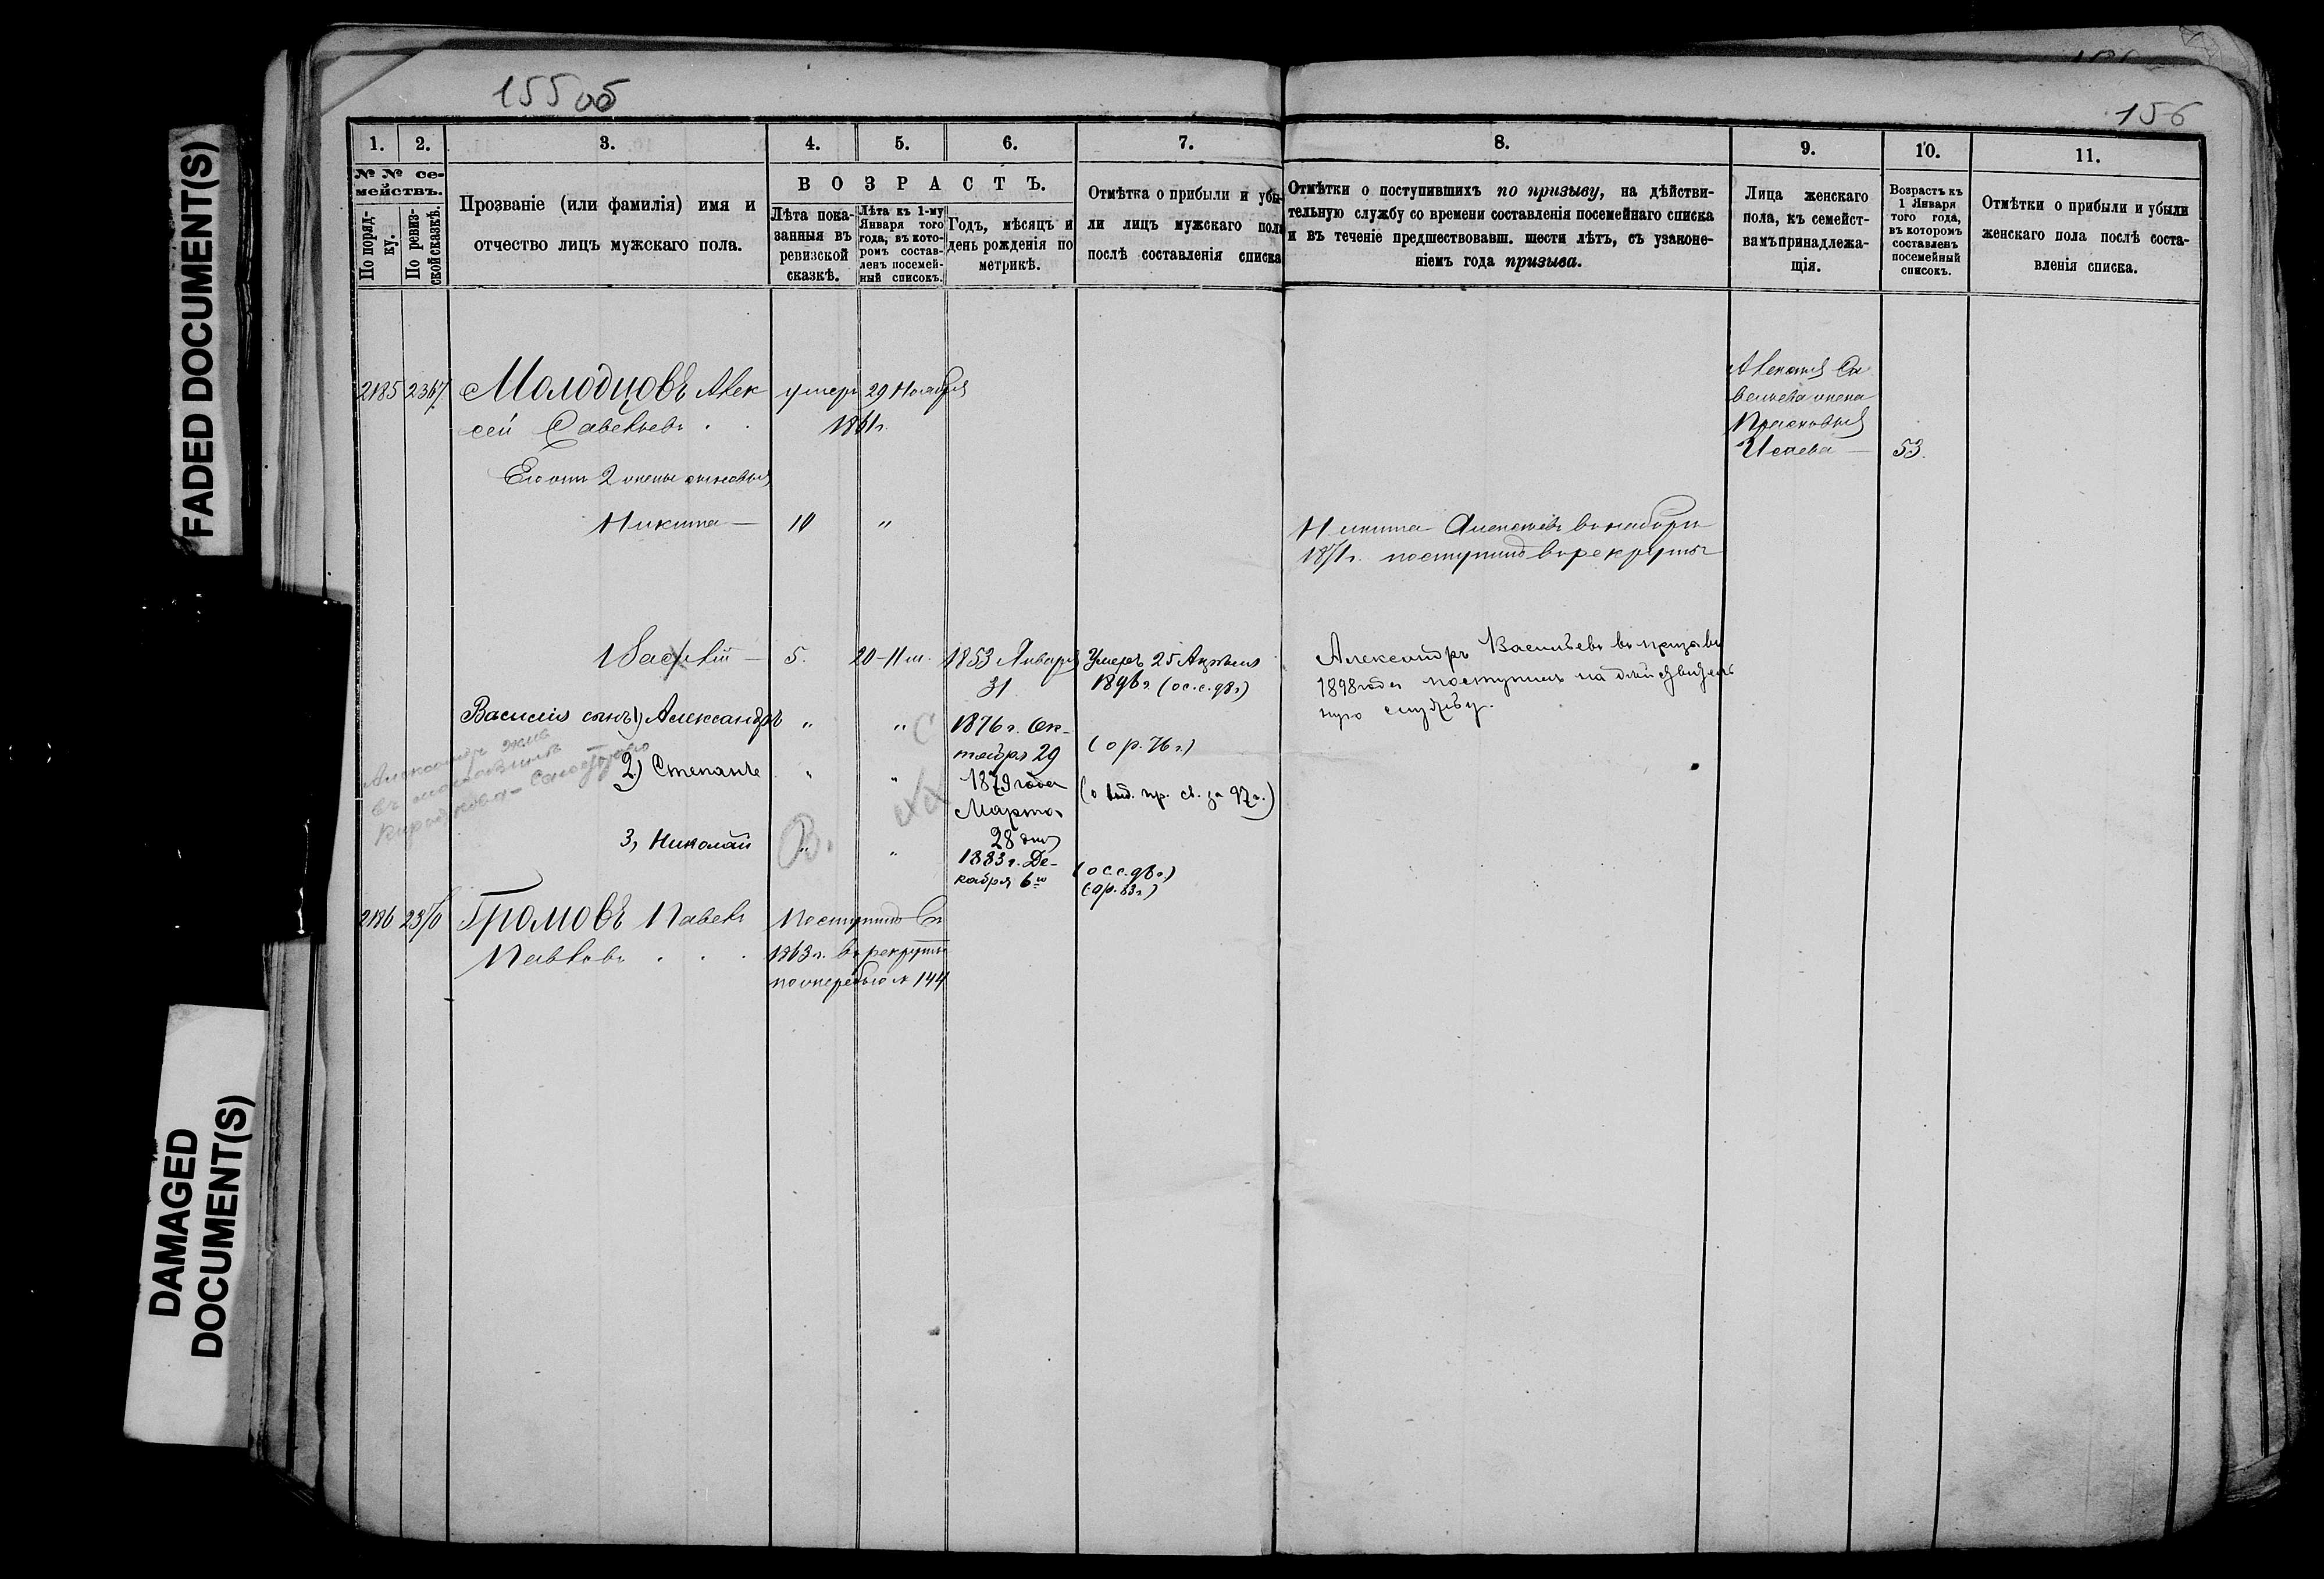 155 об
156
FADED DOCUMENT(S)
DAMAGED
DOCUMENT(S)
1.
2.
3.
4.
5.
6.
7.
8.
9.
10.
11.
№ № се-
мействъ.
По поряд-
ку.
По ревиз-
ской сказкѣ.
Прозваніе (или фамилія) имя и
отчество лицъ мужскаго пола.
ВОЗРАСТЪ.
Лѣта пока-
занныя въ
ревизской
сказкѣ.
Лѣта къ 1-му
Января того
года, въ кото-
ромъ состав-
ленъ посемей-
ный списокъ.
Годъ, мѣсяцъ и
день рожденія по
метрикѣ.
Отмѣтка о прибыли и убы-
ли лицъ мужскаго пола
послѣ составленія списка
Отмѣтки о поступившихъ по призыву, на дѣйстви-
тельную службу со времени составленія посемейнаго списка
и въ теченіе предшествовавш. шести лѣтъ, съ узаконе-
ніемъ года призыва.
Лица женскаго
пола, къ семейст-
вамъ принадлежа-
щія.
Возрастъ къ
1 Января
того года,
въ котором
составленъ
посемейный
списокъ.
Отмѣтки о прибыли и убыли
женскаго пола послѣ соста-
вленія списка.
2185 2367 Молодцовъ Алек
сей Савельевъ . .
умеръ 29 Ноября
1861 г.
Алексѣя Са
вельева жена
Прасковья
Исаева — 53.
Его отъ 2 жены сыновья
Никита — 10 "
Никита Алексѣевъ въ наборъ
1871 г. поступилъ въ рекруты
Василій — 5. 20-11 м. 1853 Января
31
Умеръ 25 Апрѣля
1896 г. (о с. с. 98 г)
Александръ Васильевъ въ призывъ
1898 года поступилъ на дѣйствитель
ную службу.
Василія сынъ 1) Александръ " " 1876 г. Ок-
тября 29
(о р. 76 г.)
Александръ
2) Степанъ " " 1879 года
Марта
28 дня
(о выд. пр. св. за 97 г.)
3, Николай " " 1883 г. Де-
кабря 6го
(о с с. 98 г.)
(о р. 83 г.)
2186 2370 Громовъ Павелъ
Павловъ . . .
Поступилъ въ
1863 г. въ рекруты
по жеребью № 144